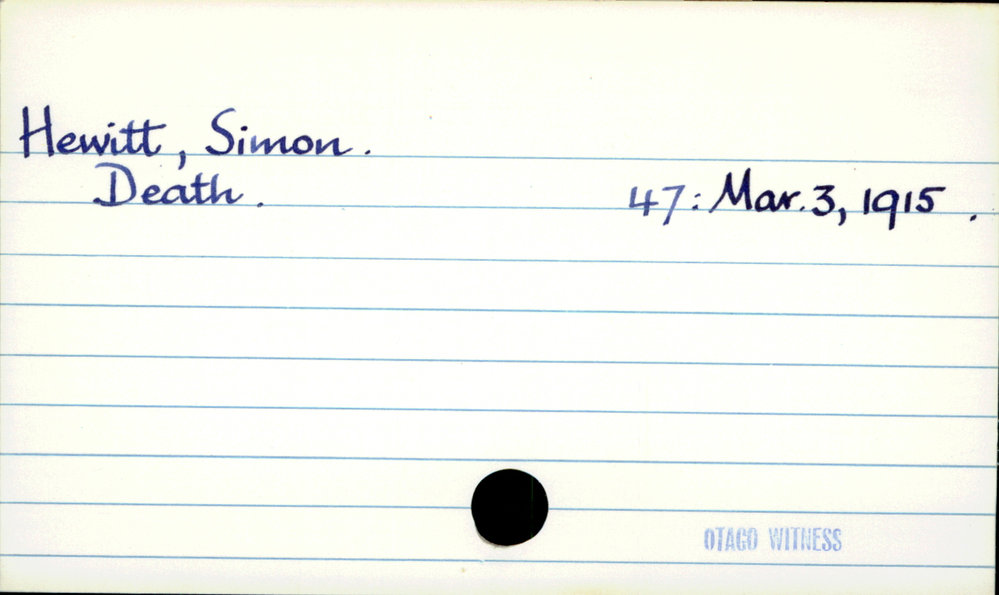 Hewitt, Simon.
Death. 47: Mar. 3, 1915.
OTAGO WITNESS